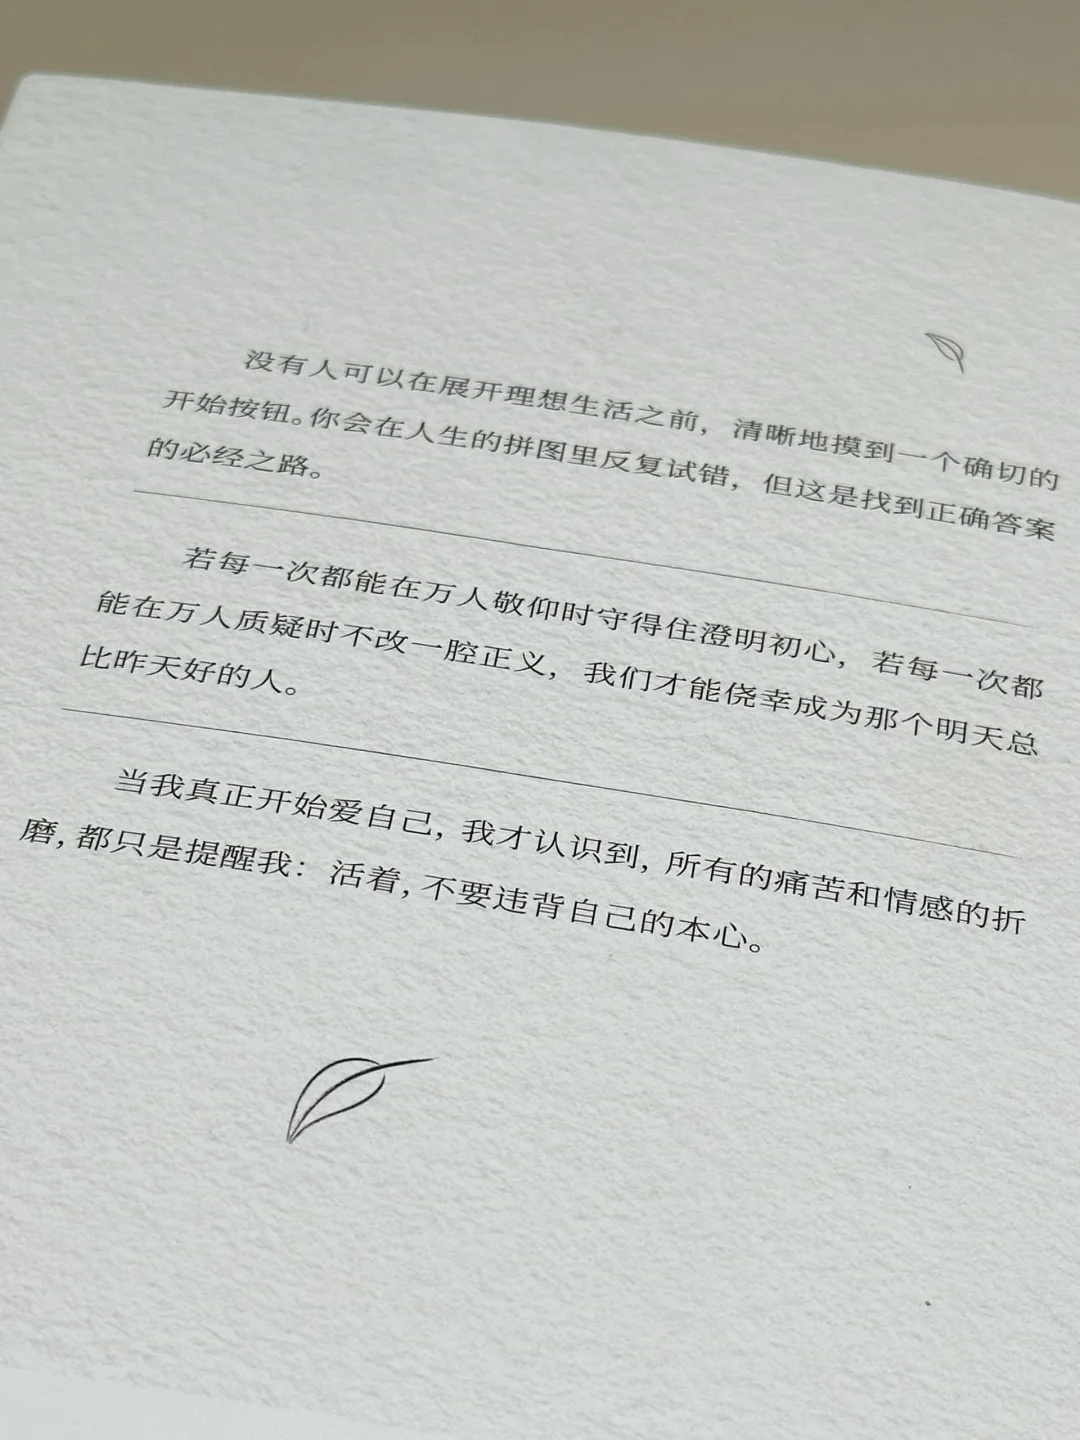 没有人可以在展开理想生活之前，清晰地摸到一个确切的
开始按钮。你会在人生的拼图里反复试错，但这是找到正确答案
的必经之路。
若每一次都能在万人敬仰时守得住澄明初心，若每一次都
能在万人质疑时不改一腔正义，我们才能侥幸成为那个明天总
比昨天好的人。
当我真正开始爱自己，我才认识到，所有的痛苦和情感的折
磨，都只是提醒我：活着，不要违背自己的本心。